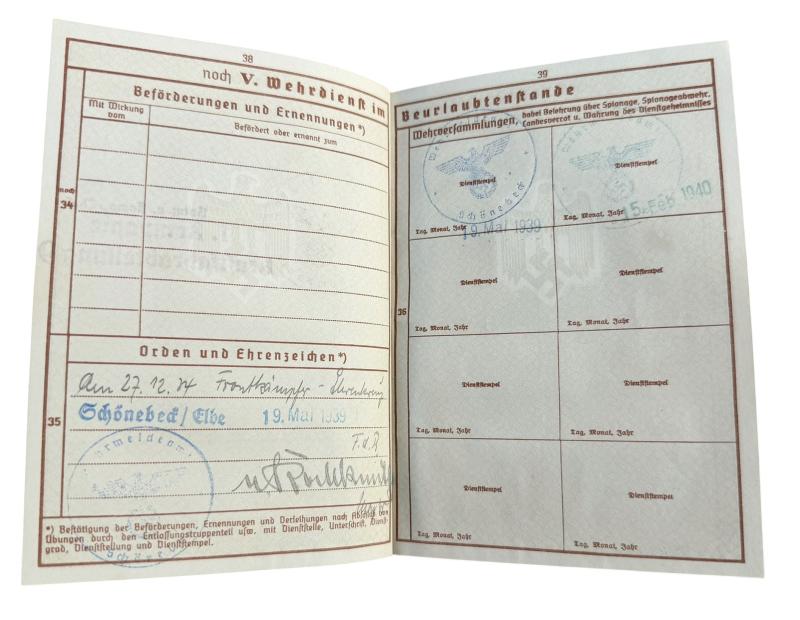 38
noch V. Wehrdienst im
Beförderungen und Ernennungen*)
Mit Wirkung vom
Befördert oder ernannt zum
noch
34
Orden und Ehrenzeichen*)
Am 27.12.34 Frontkämpfer-
Schönebeck/Elbe 19. Mai 1939
35
F. d. R.
*) Bestätigung der Beförderungen, Ernennungen und Verleihungen nach Abschluß von
Übungen durch den Entlassungstruppenteil usw. mit Dienststelle, Unterschrift, Dienst-
grad, Dienststellung und Dienststempel.
39
Beurlaubtenstande
Wehrversammlungen, dabei Belehrung über Spionage, Spionageabwehr,
Landesverrat u. Wahrung des Dienstgeheimnisses
Dienststempel
Dienststempel
Schönebeck
Tag, Monat, Jahr
Tag, Monat, Jahr
19. Mai 1939
15. Feb 1940
36
Dienststempel
Dienststempel
Tag, Monat, Jahr
Tag, Monat, Jahr
Dienststempel
Dienststempel
Tag, Monat, Jahr
Tag, Monat, Jahr
Dienststempel
Dienststempel
Tag, Monat, Jahr
Tag, Monat, Jahr